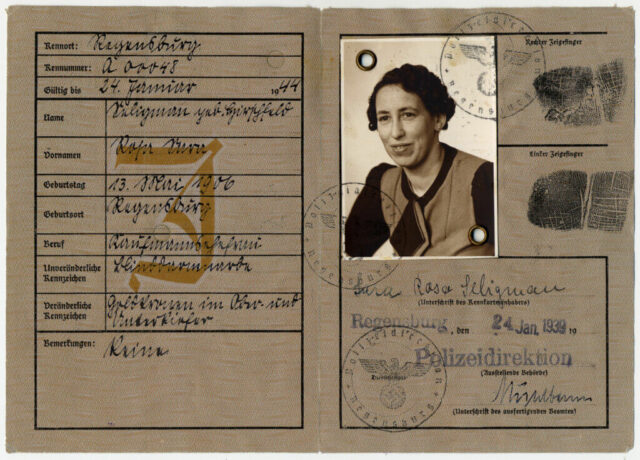 Kennort: Regensburg
Kennnummer: A 00048
Gültig bis 24. Januar 1944
Name Seligman geb. Hirschfeld
Vornamen Rosa Sara
Geburtstag 13. Mai 1906
Geburtsort Regensburg
Beruf Kaufmannsehefrau
Unveränderliche
Kennzeichen Blinddarmnarbe
Veränderliche
Kennzeichen Goldkronen im Ober- und
Unterkiefer
Bemerkungen: Keine
J
Polizeidirektion
Regensburg
Rechter Zeigefinger
Linker Zeigefinger
Polizeidirektion
Regensburg
Sara Rosa Seligman
(Unterschrift des Kennkarteninhabers)
Regensburg, den 24. Jan. 1939 19
Polizeidirektion
(Ausstellende Behörde)
(Unterschrift des ausfertigenden Beamten)
Polizeidirektion
Regensburg